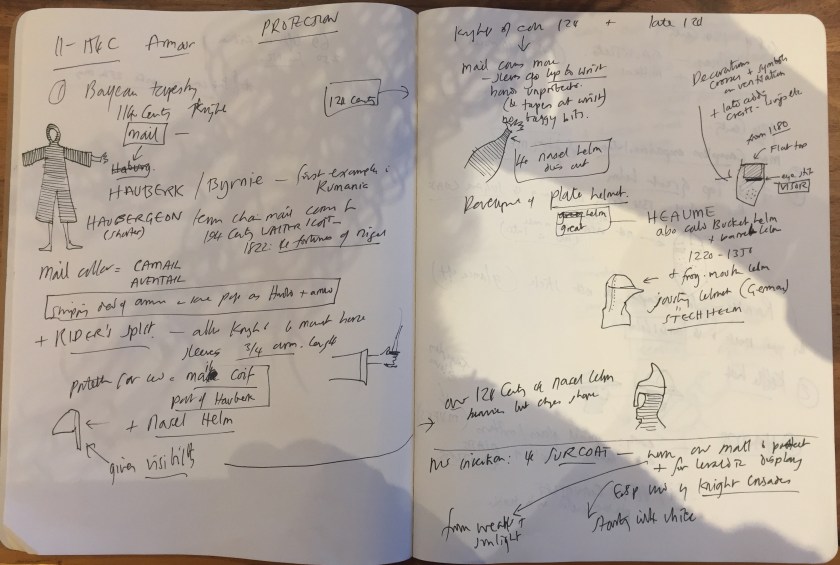 PROTECTION
11-15th C Armour
① Bayeux tapestry
11th Century Knight
mail
12th Century
Hauberg
HAUBERK / Byrnie - first example in
Rumania
HAUBERGEON / term chain mail comes in
(shorter) 19th Century WALTER SCOTT -
1822: the fortunes of Nigel
Mail collar = CAMAIL
AVENTAIL
+ RIDER'S split - allow Knight to mount horse
sleeves 3/4 arm length
protection for = mail Coif
part of Hauberk
+ Nasal Helm
gives visibility
Knights of 12th + late 12th
Mail covers more
- sleeves go up to wrist
hands unprotected
(& tapes at wrist)
baggy bits.
the nasal helm
dies out
Decoration
crosses + symbols
on ventilation
+ later adding
crests - wings etc
from 1180
Flat top
eye slit
VISOR
Development of plate helmet
great helm
HEAUME
also called Bucket helm
+ barrel helm
1220-1350
+ frog-mouth helm
jousting helmet (German)
STECHHELM
over 12th Century the nasal helm
survives but changes shape
New invention: the SURCOAT - worn over mail to protect
+ for heraldic display
Esp used by Knight Crusades
from weather +
sunlight
Starting with white